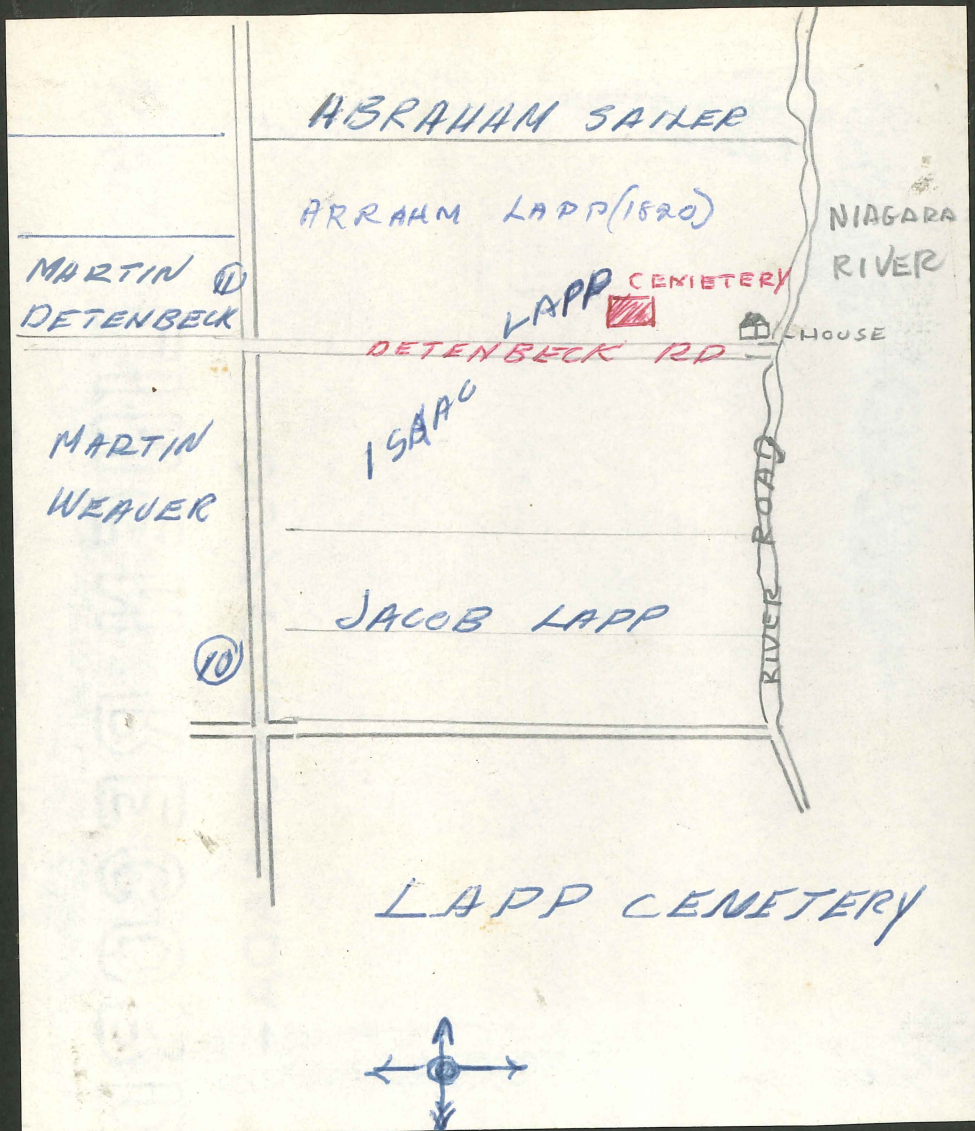 ABRAHAM SAILER
ARRAHM LAPP (1820)
NIAGARA
RIVER
MARTIN 11
DETENBECK
LAPP
CEMETERY
HOUSE
DETENBECK RD
ISAAC
MARTIN
WEAVER
RIVER ROAD
JACOB LAPP
10
LAPP CEMETERY